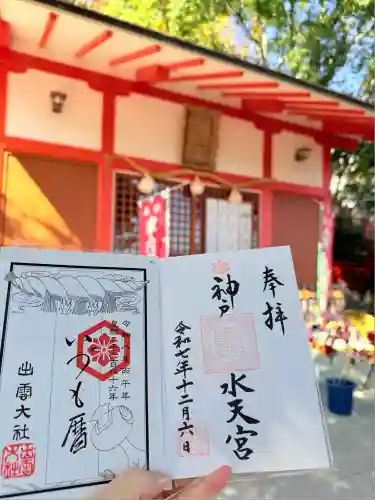 奉拝
神戸
水天宮
令和七年十二月六日
丙午年
いつも暦
出雲大社